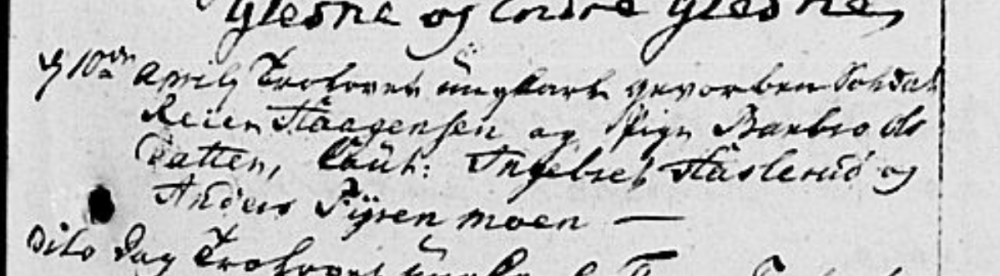 Glesne og Endre Glesne,
d 10de Aprily Trolovet ungkarl gevorben Soldat
Reier Haagensen og Pige Barbro Ols
Datter, Caut: Ingebret Haslerud og
Anders Fyrenmoen —
Dito Dag Trolovet